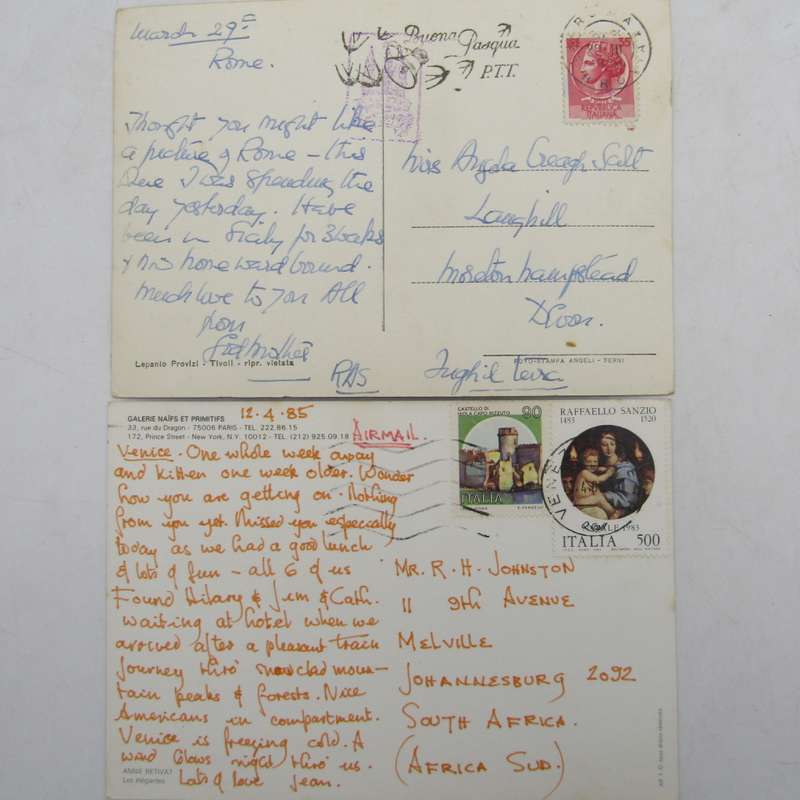 March 29th
Rome.
Thought you might like
a picture of Rome – this
one I was spending the
day yesterday. Have
been in Sicily for 3 weeks
& now homeward bound.
Much love to you All
from
Godmother
RAS
Lepanto Provizi - Tivoli - ripr. vietata
Buona
Pasqua
P.T.T.
Miss Angela Creagh Salt
Langhill
Moretonhampstead
Devon.
Inghilterra
FOTO-STAMPA ANGELI - TERNI
GALERIE NAÏFS ET PRIMITIFS
33, rue du Dragon - 75006 PARIS - TEL. 222.86.15
172, Prince Street - New York, N.Y. 10012 - TEL. (212) 925.09.18
12.4.85
AIRMAIL
Venice. One whole week away
and kitten one week older. Wonder
how you are getting on. Nothing
from you yet. Missed you especially
today as we had a good lunch
& lots of fun – all 6 of us
Found Hilary & Jim & Cath.
waiting at hotel when we
arrived after a pleasant train
journey thro' snowclad moun-
tain peaks & forests. Nice
Americans in compartment.
Venice is freezing cold. A
wind blows right thro' us.
Lots of love Jean.
ANNIE RETIVAT
Les élégantes
CASTELLO DI
ISOLA CAPO RIZZUTO
90
ITALIA
RAFFAELLO SANZIO
1483 1520
ITALIA 500
Mr. R. H. JOHNSTON
11 9th AVENUE
MELVILLE
JOHANNESBURG 2092
SOUTH AFRICA.
(AFRICA SUD.)